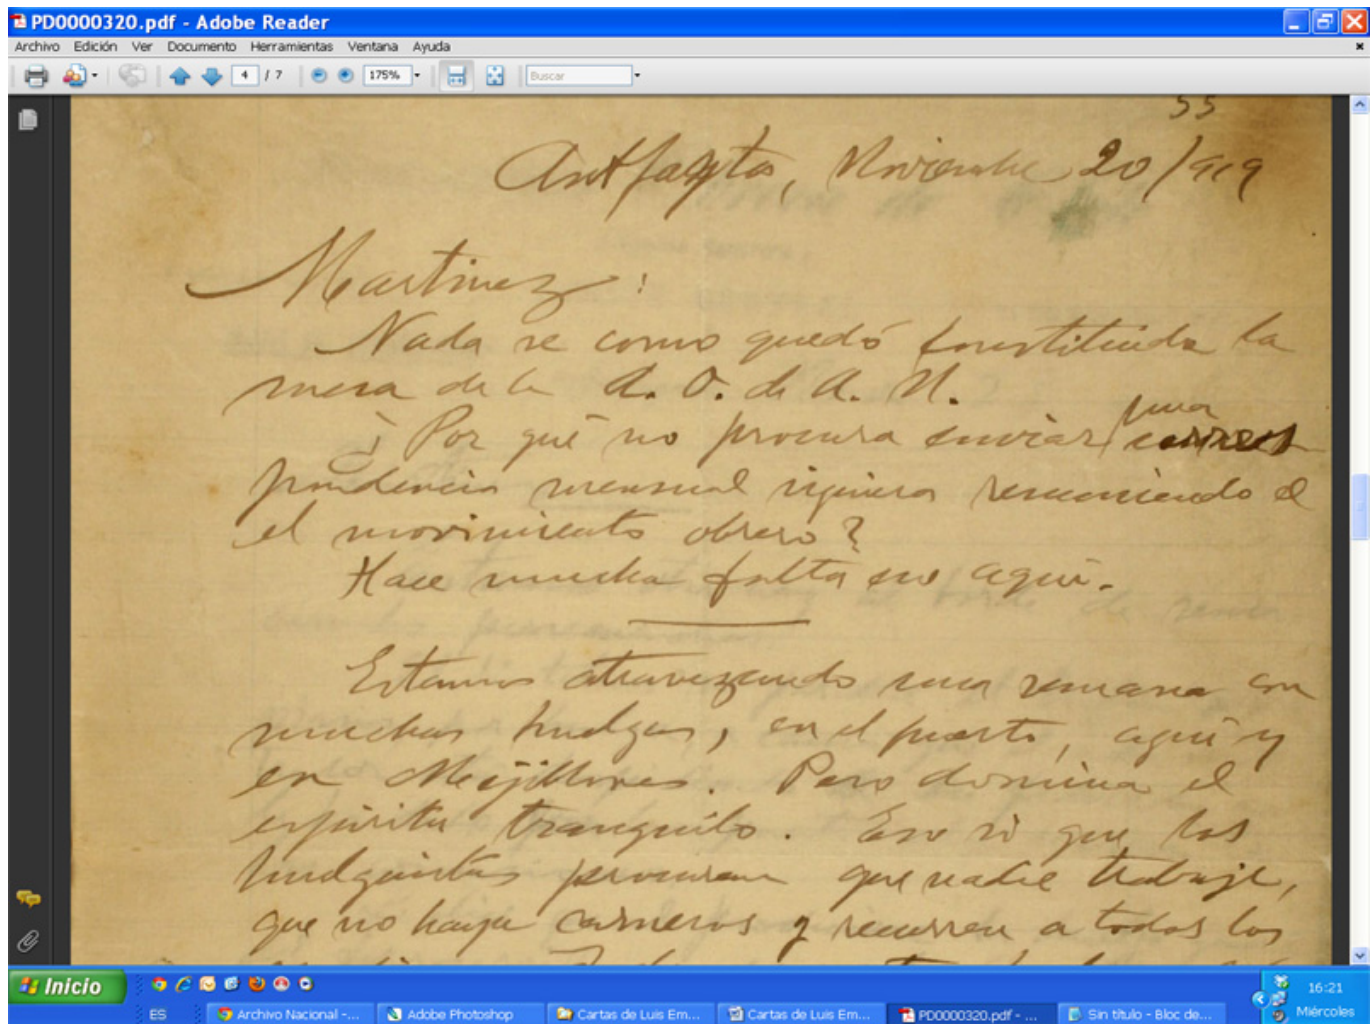 PD0000320.pdf - Adobe Reader
Archivo Edición Ver Documento Herramientas Ventana Ayuda
4 / 7 175% Buscar
55
Antfagsta, Noviembre 20/919
Martinez:
Nada se como quedó constituida la
mesa de la A. O. de A. N.
una
¿Por qué no procura enviar corres
pondencia mensual siquiera resumiendo el
el movimiento obrero?
Hace mucha falta eso aquí.
Estamos atravezando una semana con
muchas huelgas, en el puerto, aquí y
en Mejillones. Pero domina el
espíritu tranquilo. Eso si que los
huelguistas procuran que nadie trabaje,
que no haya carneros y recurren a todos los
Inicio 16:21
ES Archivo Nacional -... Adobe Photoshop Cartas de Luis Em... Cartas de Luis Em... PD0000320.pdf - ... Sin título - Bloc de... Miércoles